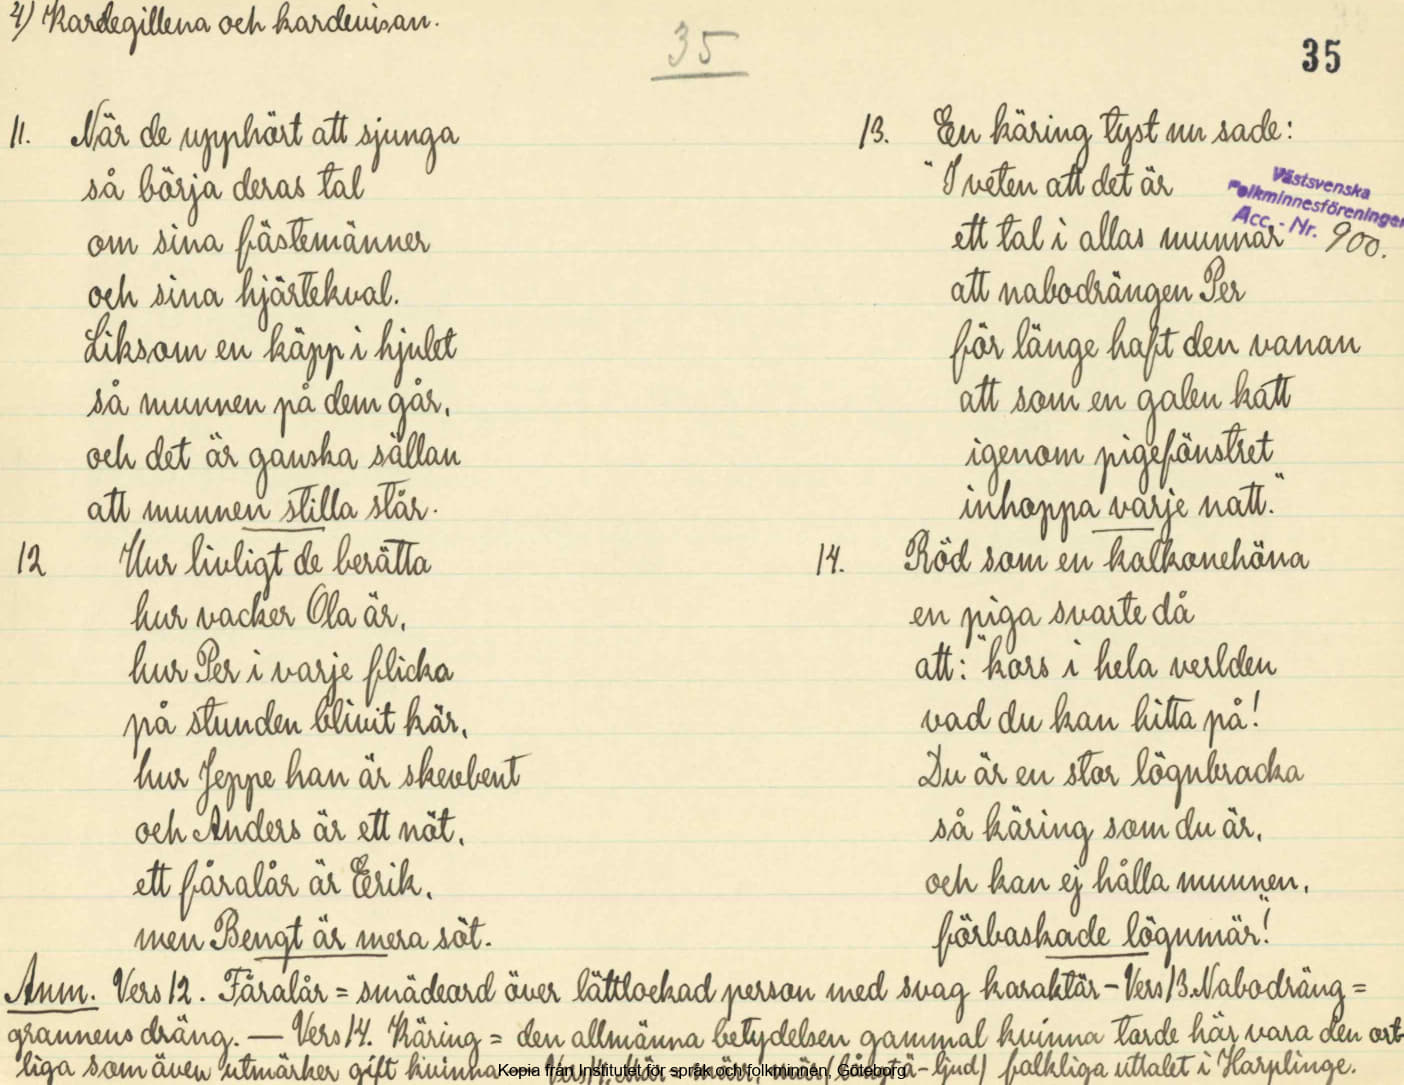 4) Kardegillena och kardevisan.
35
35
11. När de upphört att sjunga
så börja deras tal
om sina fästemänner
och sina hjärtekval.
Liksom en käpp i hjulet
så munnen på dem går,
och det är ganska sällan
att munnen stilla står.
12 Hur livligt de berätta
hur vacker Ola är,
hur Per i varje flicka
på stunden blivit kär,
hur Jeppe han är skevbent
och Anders är ett nöt,
ett fåralår är Erik,
men Bengt är mera söt.
13. En käring tyst nu sade:
"I veten att det är
ett tal i allas munnar
att nabodrängen Per
för länge haft den vanan
att som en galen katt
igenom pigefönstret
inhoppa varje natt."
14. Röd som en kalkonehöna
en piga svarte då
att: "kors i hela verlden
vad du kan hitta på!
Du är en stor lögnbracka
så käring som du är,
och kan ej hålla munnen,
förbaskade lögnmär"!
Västsvenska
Folkminnesföreningen
Acc. - Nr. 900.
Anm. Vers 12. Fåralår = smädeord över lättlockad person med svag karaktär – Vers 13. Nabodräng =
grannens dräng. — Vers 14. Käring = den allmänna betydelsen gammal kvinna torde här vara den ort-
liga som även utmärker gift kvinna (långt ä-ljud) folkliga uttalet i Harplinge.
Kopia från Institutet för språk och folkminnen, Göteborg